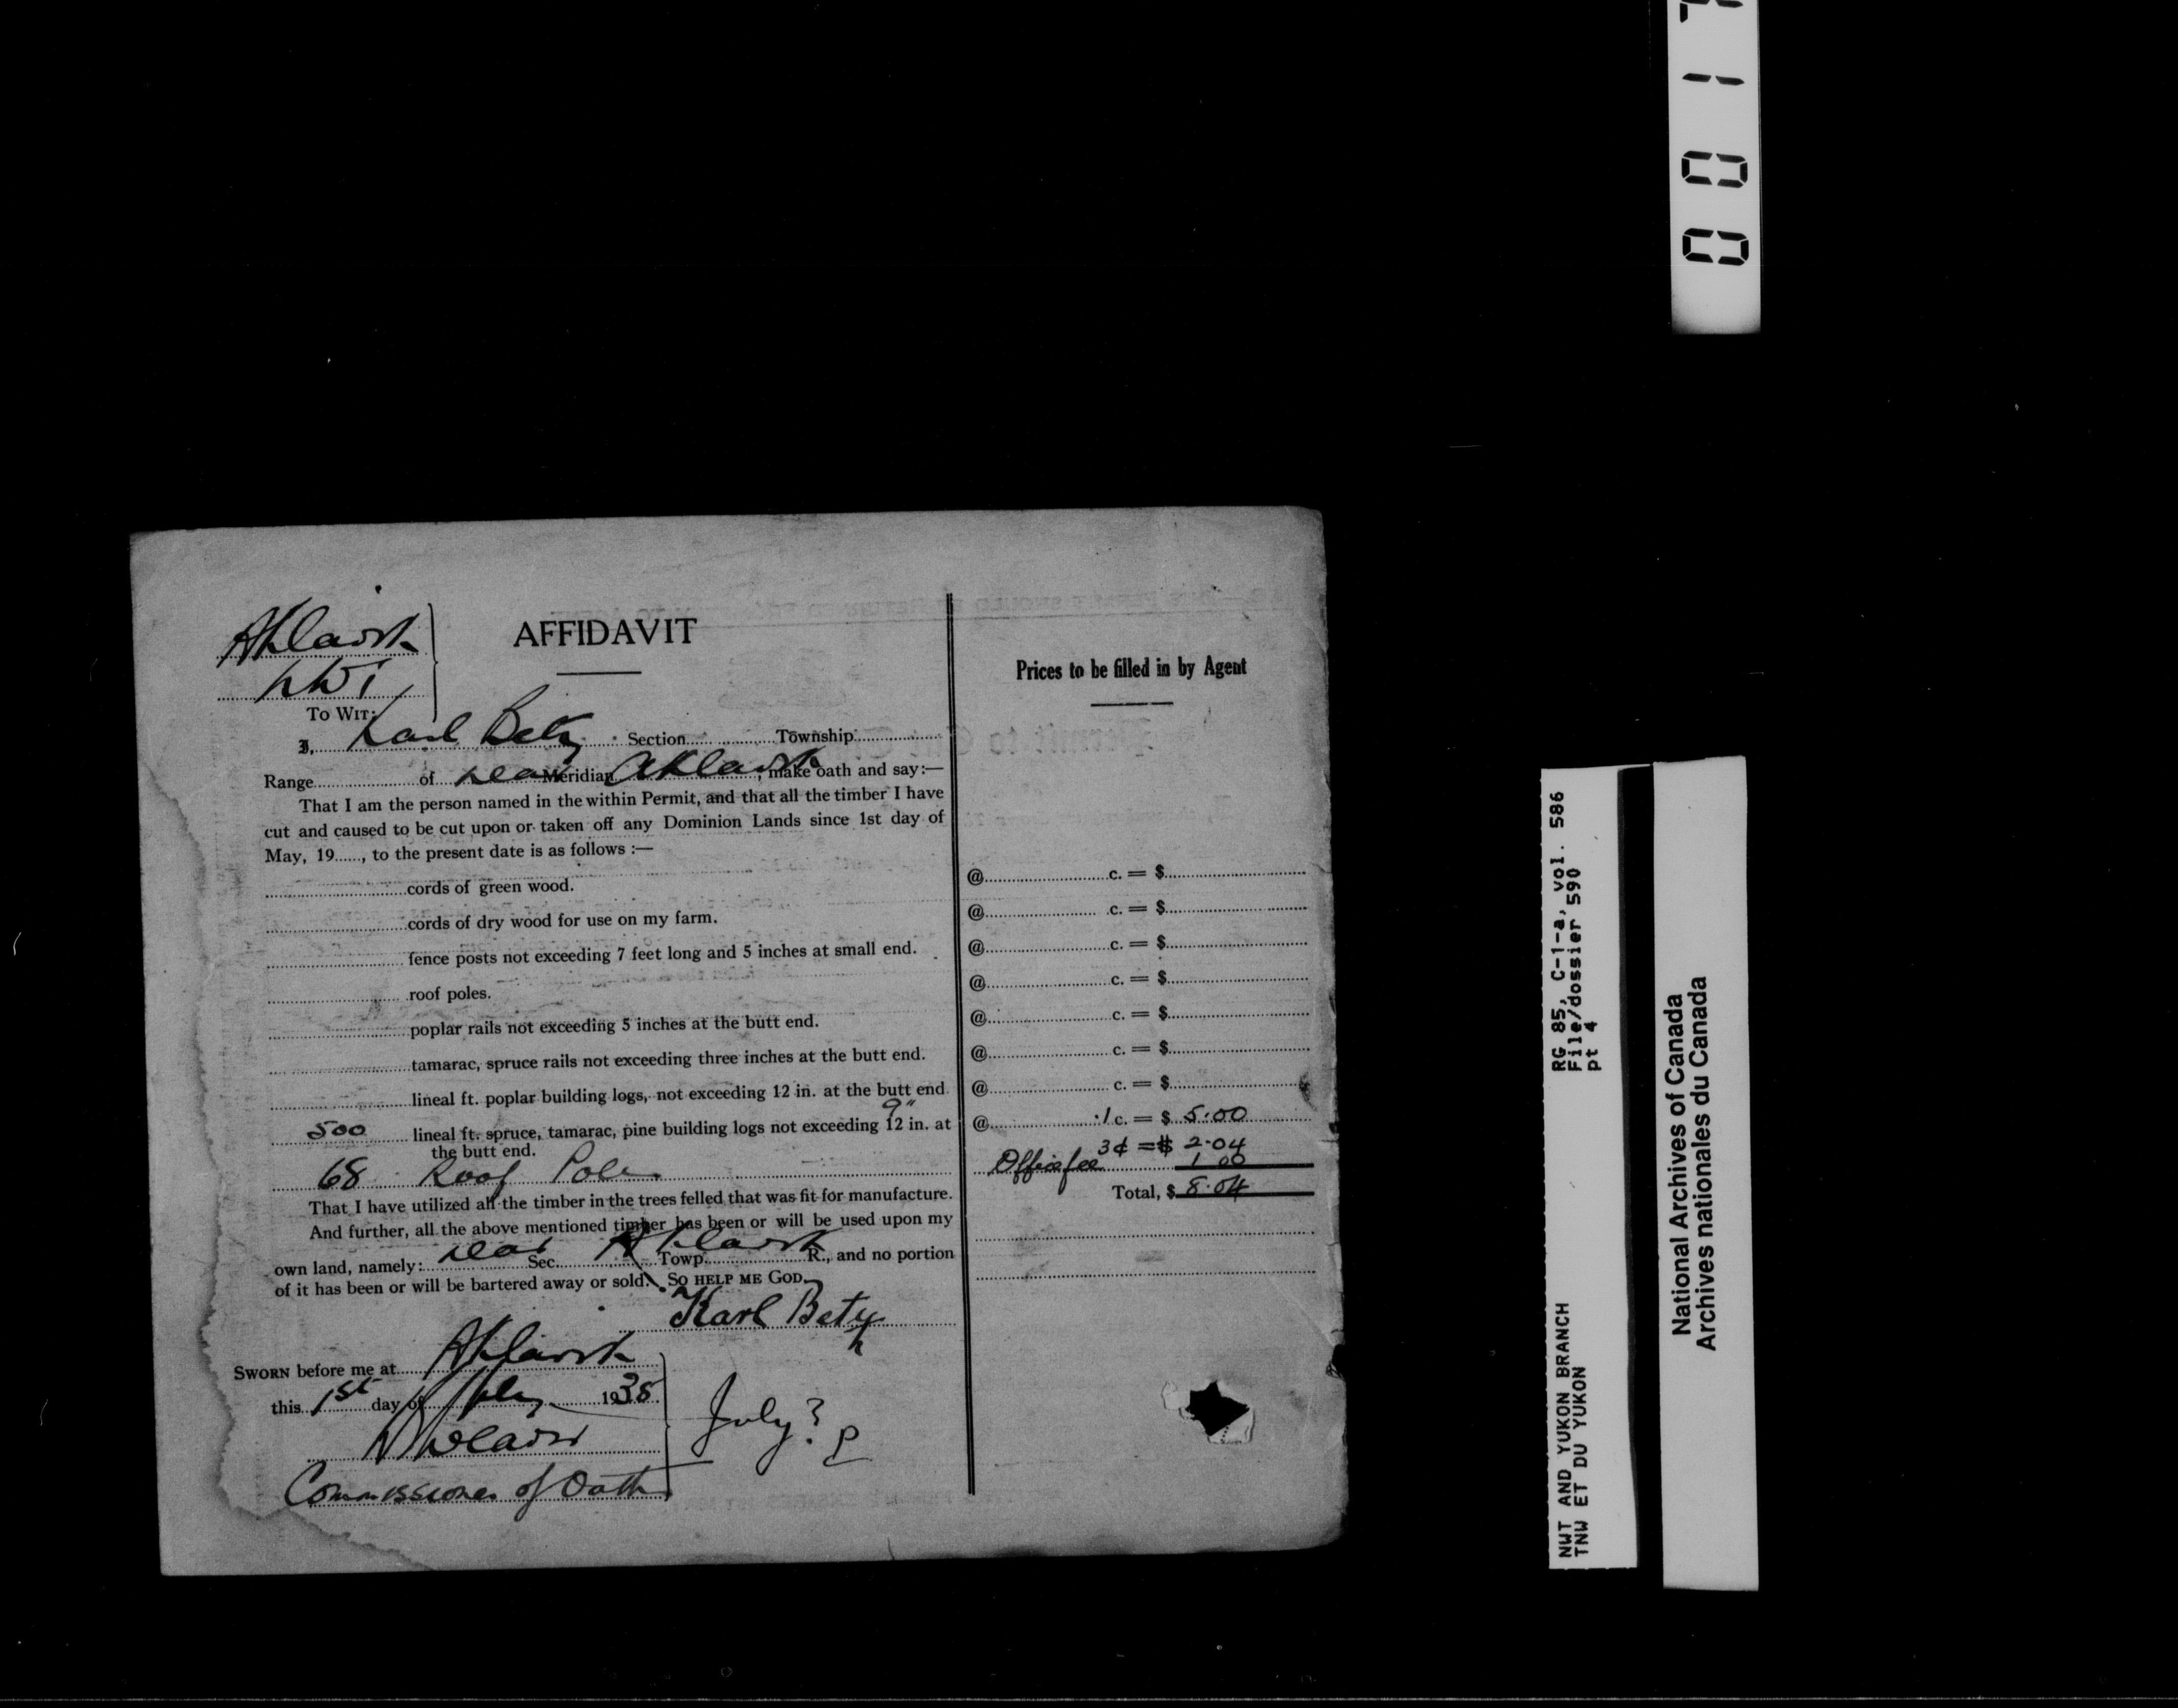 Aklavik
NWT
To Wit:
AFFIDAVIT
I, Karl Betz Section Township
Range of near Meridian Aklavik, make oath and say:—
That I am the person named in the within Permit, and that all the timber I have
cut and caused to be cut upon or taken off any Dominion Lands since 1st day of
May, 19......, to the present date is as follows :—
cords of green wood.
cords of dry wood for use on my farm.
fence posts not exceeding 7 feet long and 5 inches at small end.
roof poles.
poplar rails not exceeding 5 inches at the butt end.
tamarac, spruce rails not exceeding three inches at the butt end.
lineal ft. poplar building logs, not exceeding 12 in. at the butt end.
9"
500 lineal ft. spruce, tamarac, pine building logs not exceeding 12 in. at
the butt end.
68 Roof Poles
That I have utilized all the timber in the trees felled that was fit for manufacture.
And further, all the above mentioned timber has been or will be used upon my
own land, namely: near Sec. Aklavik Towp. R., and no portion
of it has been or will be bartered away or sold. So help me God.
Karl Betz
Sworn before me at Aklavik
this 1st day of July 1935
Commissioner of Oaths
July? P
Prices to be filled in by Agent
@ c. = $
@ c. = $
@ c. = $
@ c. = $
@ c. = $
@ c. = $
@ c. = $
@ .1 c. = $ 5.00
3¢ = $ 2.04
Office fee 1.00
Total, $ 8.04
RG 85, C-1-a, vol. 586
File/dossier 590
pt 4
NWT AND YUKON BRANCH
TNW ET DU YUKON
National Archives of Canada
Archives nationales du Canada